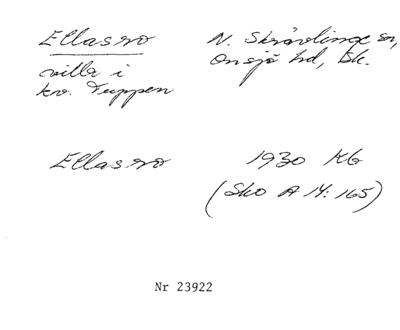 Ellasro
N. Skrävlinge sn,
villa i
Onsjö hd, Sk.
kv. Tuppen
Ellasro
1930 Kb
(Sko A 14: 165)
Nr 23922